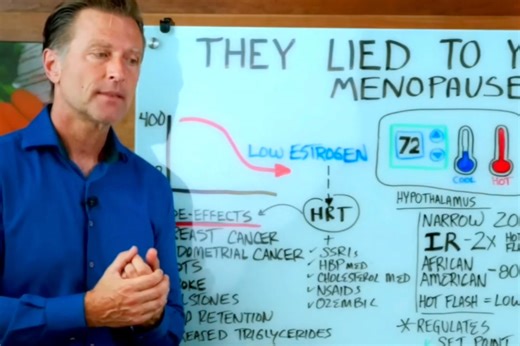 THEY LIED TO Y
MENOPAUSE
400
LOW ESTROGEN
72
COOL
HOT
HYPOTHALAMUS
E-EFFECTS
HRT
+
EAST CANCER
DOMETRIAL CANCER
OTS
OKE
LSTONES
D RETENTION
EASED TRIGLYCERIDES
✓ SSRIs
✓ HBP MED
✓ CHOLESTEROL MED
✓ NSAIDs
✓ OZEMBIC
NARROW ZO
IR-2X HOT FL
AFRICAN AMERICAN -80
HOT FLASH = LOW
*REGULATES
SET POINT